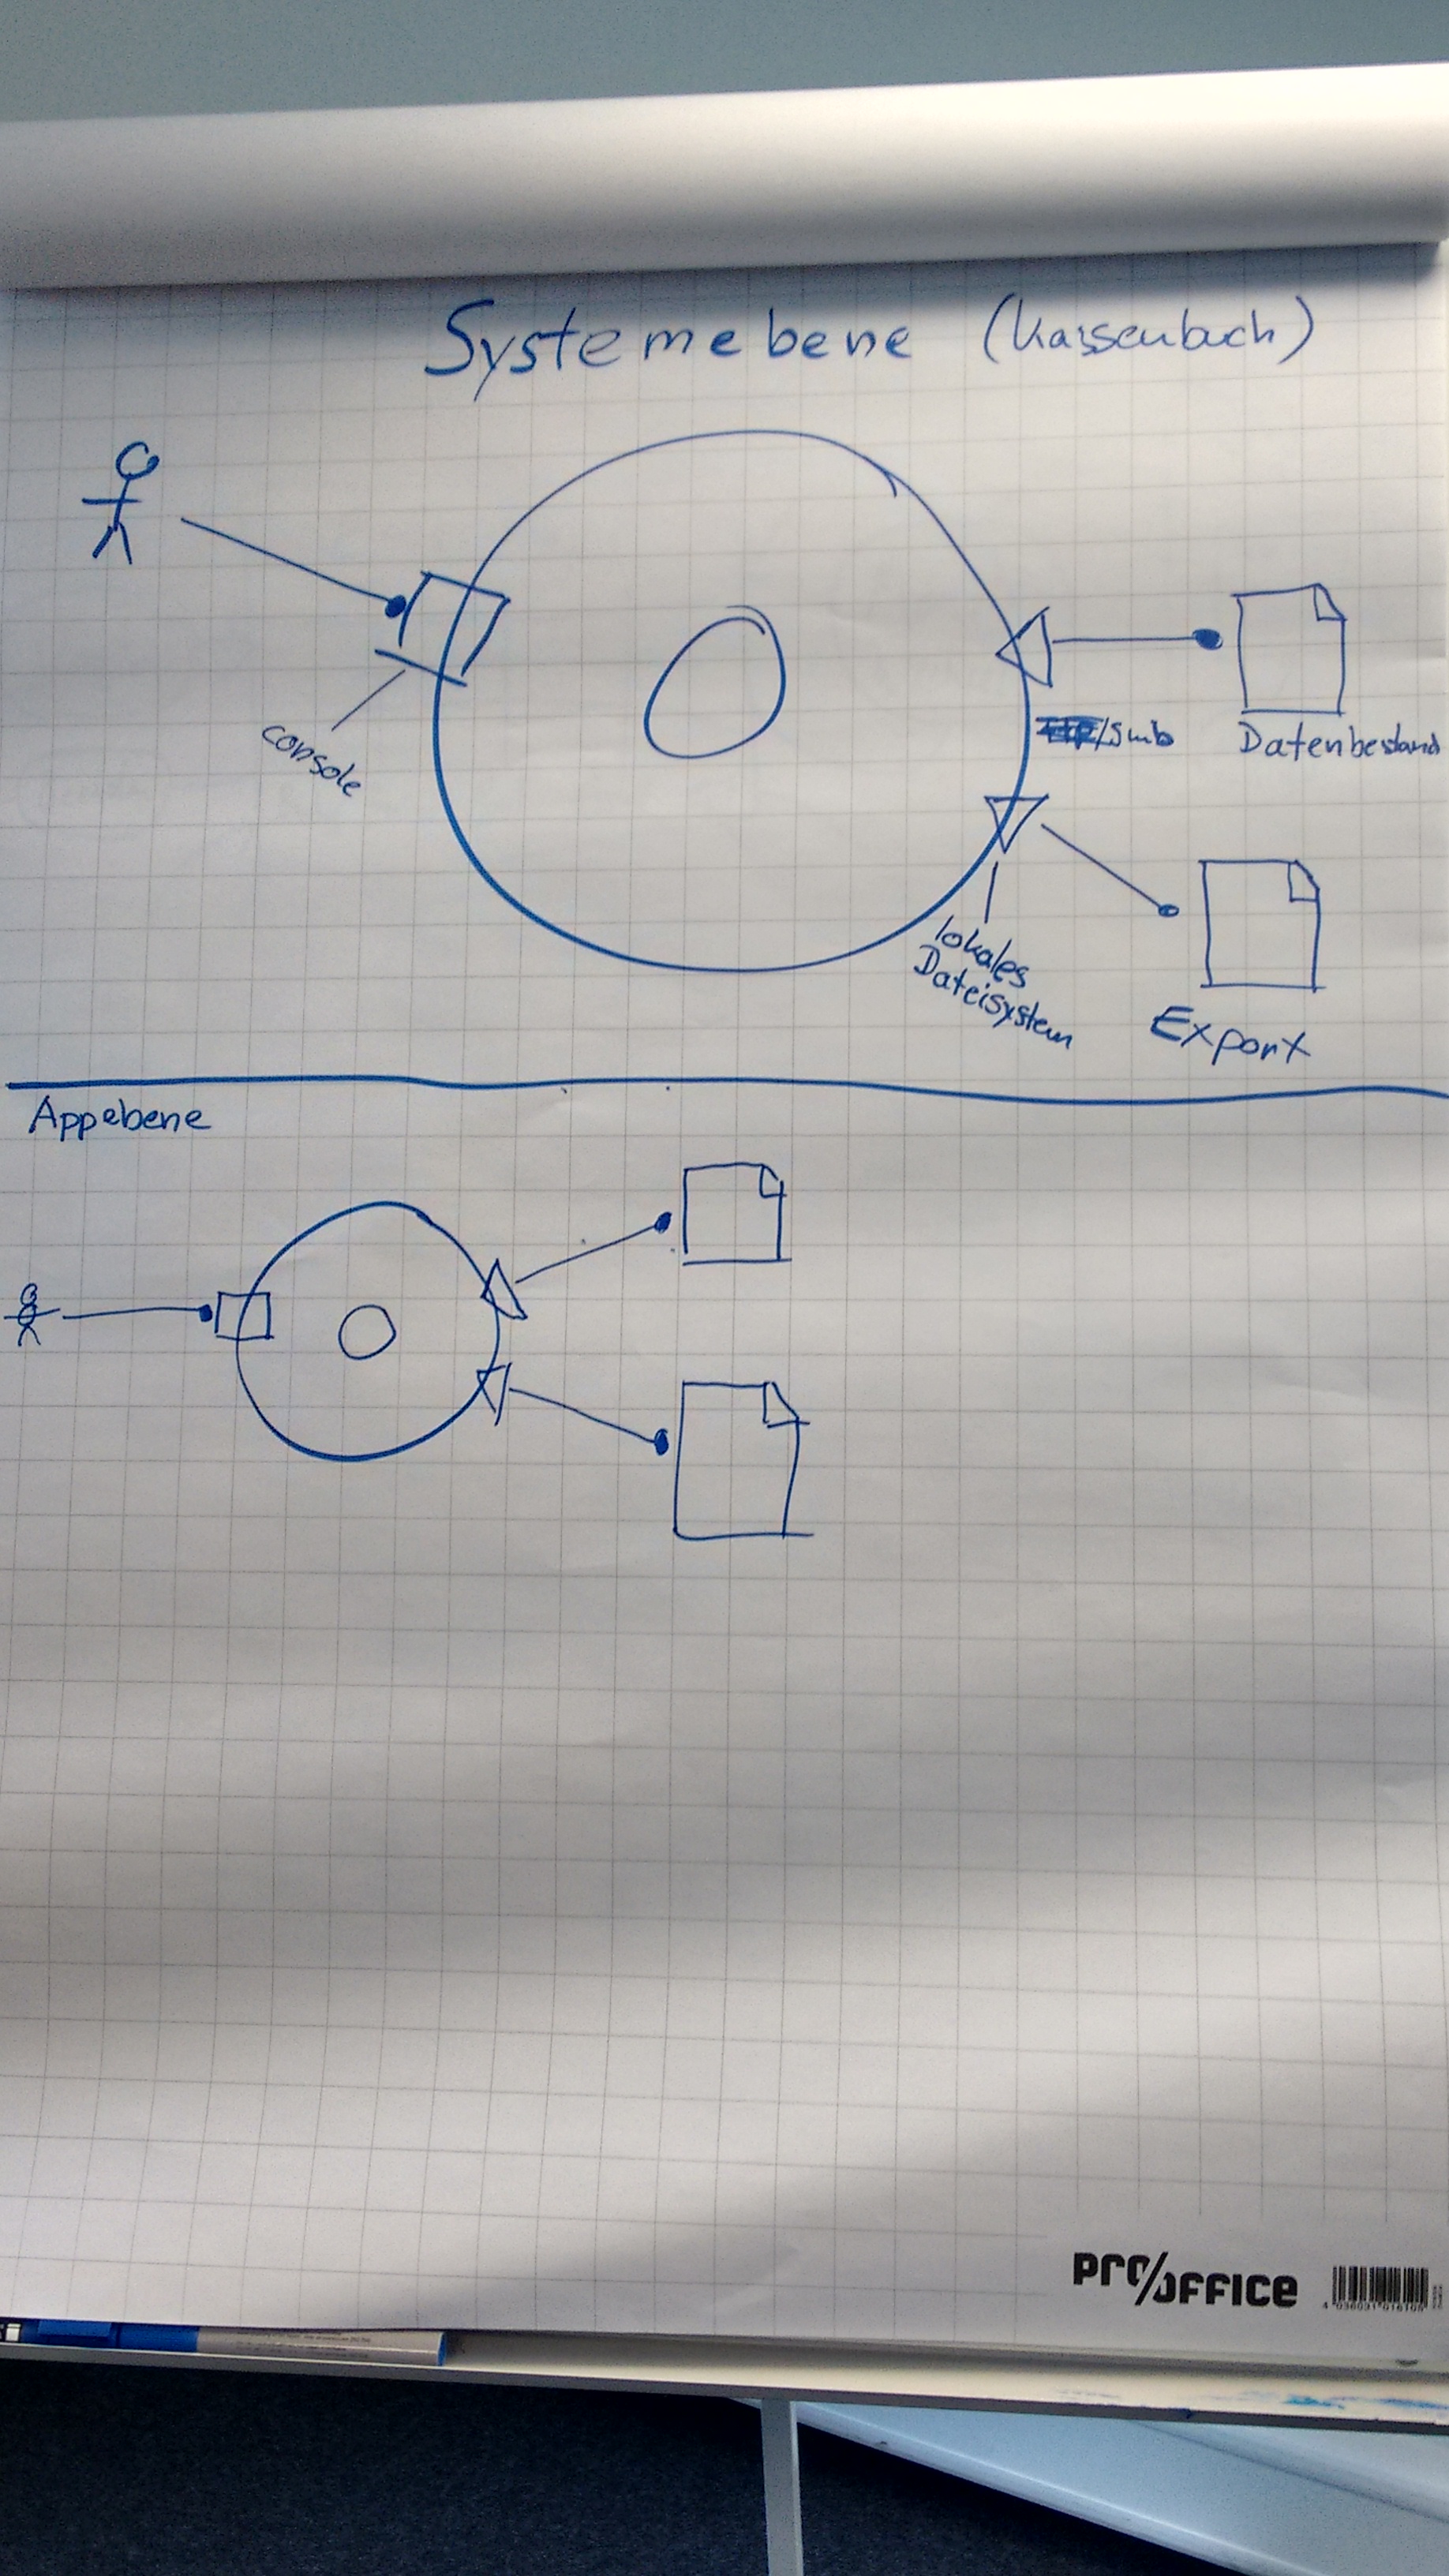 Systemebene (Kassenbuch)
console
/Smb
Datenbestand
lokales
Dateisystem
Export
Appebene
pro/office